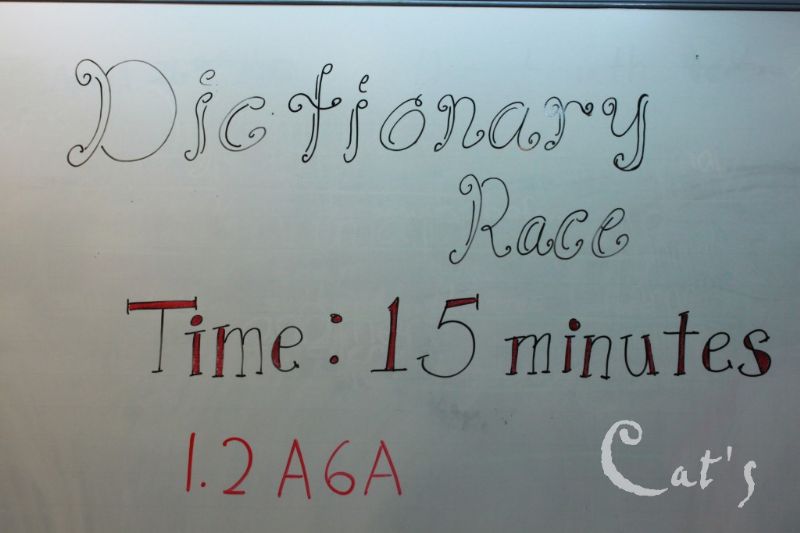 Dictionary
Race
Time: 15 minutes
1.2 A6A
Cat's